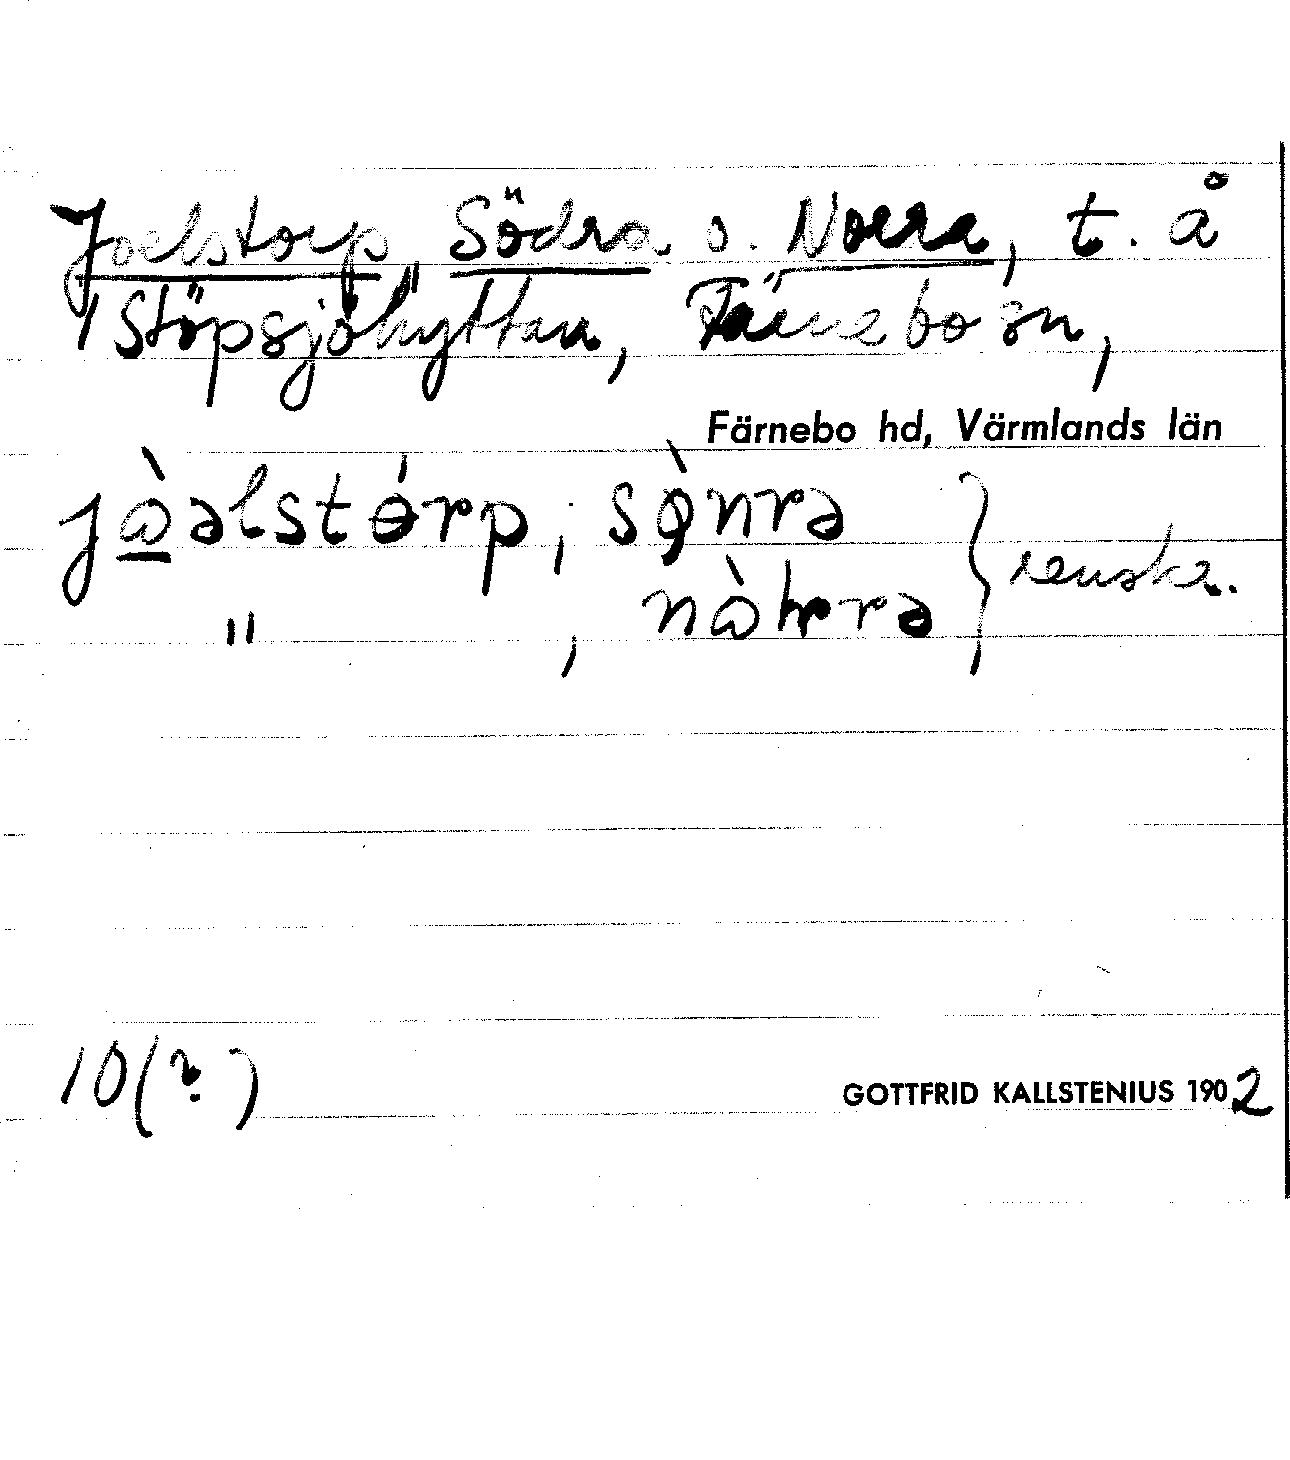 Joelstorp, Södra o. Norra, t. å
1 Stöpsjöhyttan, Färnebo sn,
Färnebo hd, Värmlands län
jὼəlstórp, sǫ̀nra
" , nὼrra } renskr.
10(?)
GOTTFRID KALLSTENIUS 1902